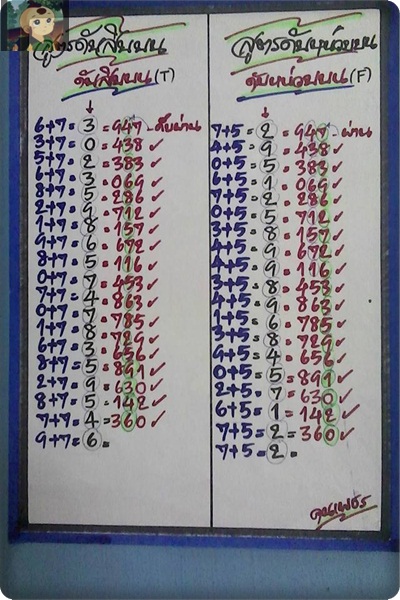 สูตรดับสิบบน
ดับสิบบน(T)
↓
6+7=3=947-ดับผ่าน
3+7=0=438✓
5+7=2=383✓
6+7=3=069✓
8+7=5=286✓
2+7=9=712✓
1+7=8=157✓
9+7=6=672✓
8+7=5=116✓
0+7=7=453✓
7+7=4=863✓
0+7=7=785✓
1+7=8=729✓
6+7=3=656✓
8+7=5=891✓
2+7=9=630✓
8+7=5=142✓
7+7=4=360✓
9+7=6=
สูตรดับหน่วยบน
ดับหน่วยบน(F)
↓
7+5=2=947-ผ่าน
4+5=9=438✓
0+5=5=383✓
6+5=1=069✓
7+5=2=286✓
0+5=5=712✓
3+5=8=157✓
4+5=9=672✓
4+5=9=116✓
3+5=8=453✓
4+5=9=863✓
1+5=6=785✓
3+5=8=729✓
9+5=4=656✓
0+5=5=891✓
2+5=7=630✓
6+5=1=142✓
7+5=2=360✓
7+5=2=